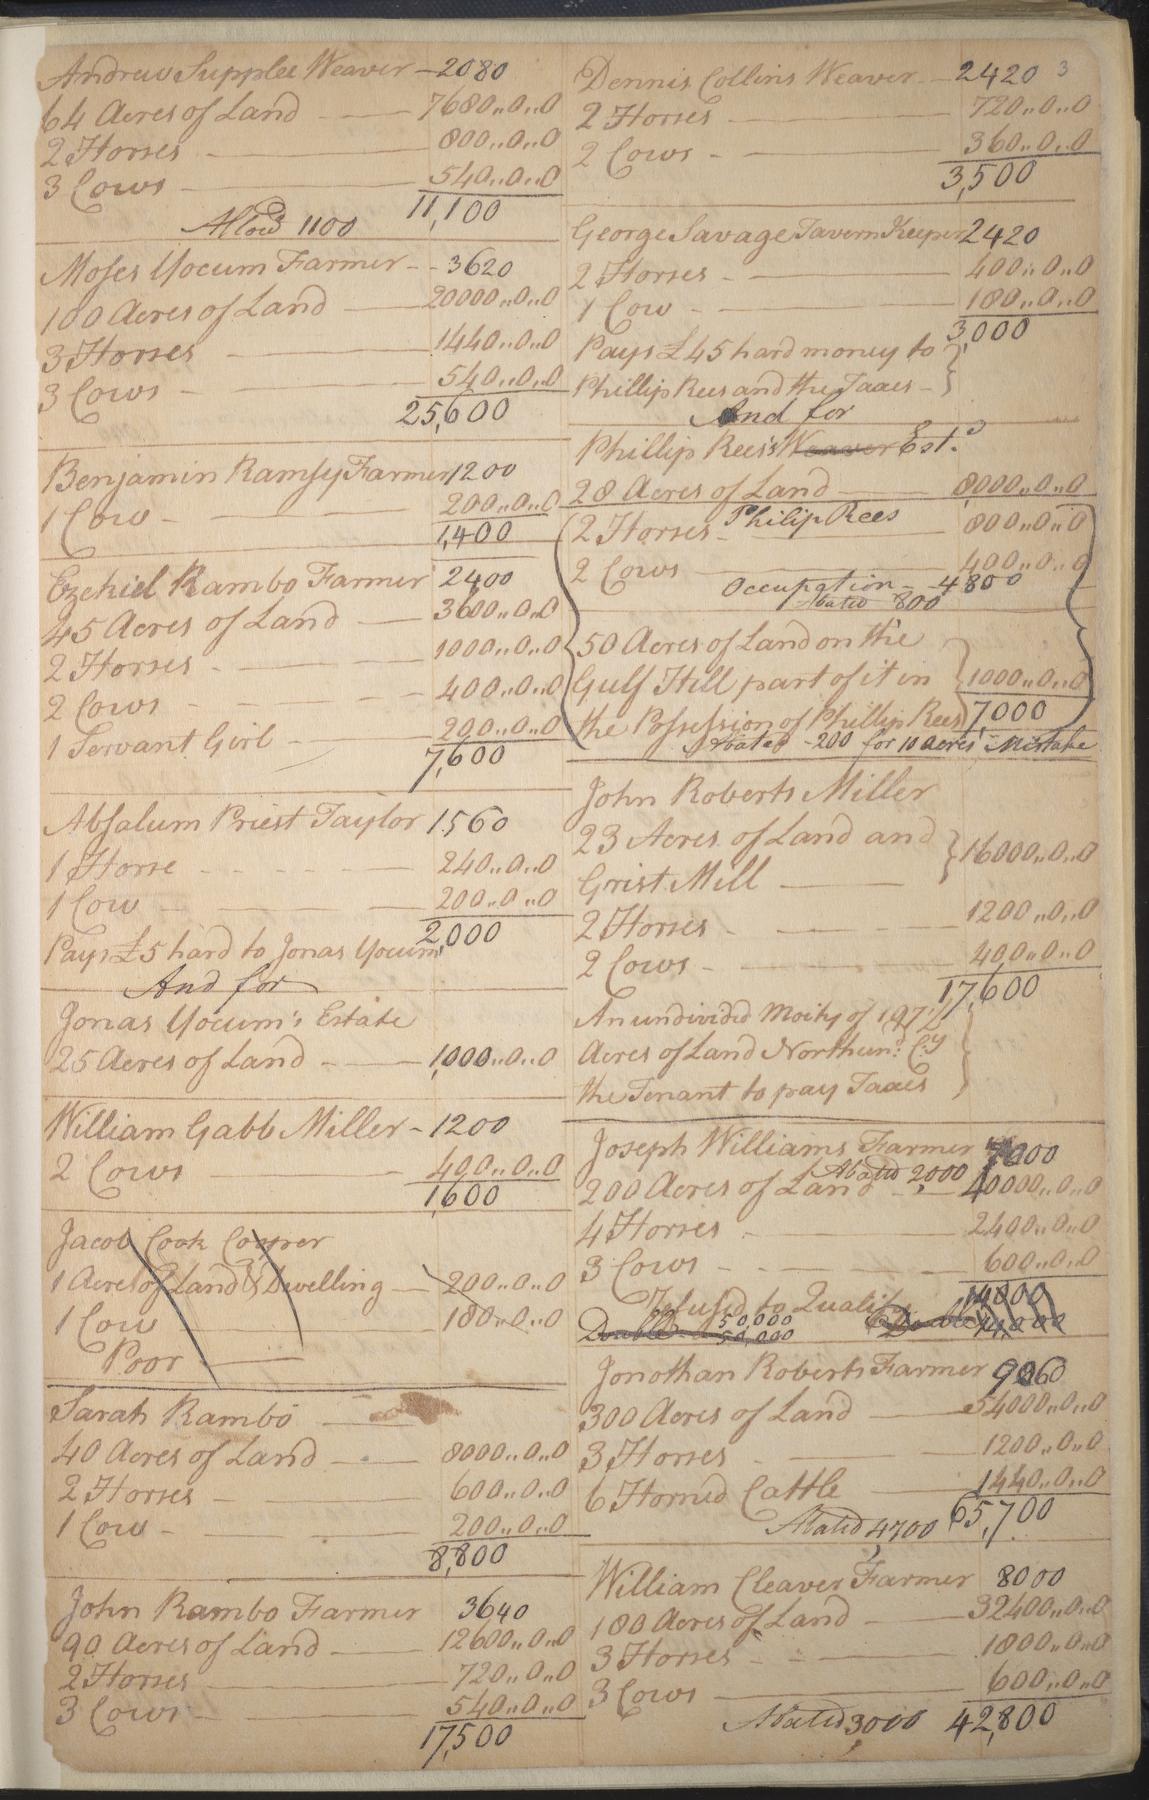 Andrew Supplee Weaver — 2080
64 Acres of Land — 7680,,0,,0
2 Horses — 800,,0,,0
3 Cows — 540,,0,,0
11,100
1100
Moses Yocum Farmer - - 3620
100 Acres of Land — 20000,,0,,0
3 Horses — 1440,,0,,0
3 Cows — 540,,0,,0
25,600
Benjamin Ramsy Farmer 1200
1 Cow - — 200,,0,,0
1,400
Ezekiel Rambo Farmer 2400
45 Acres of Land — 3600,,0,,0
2 Horses - — 1000,,0,,0
2 Cows - — 400,,0,,0
1 Servant Girl - — 200,,0,,0
7,600
Absalum Priest Taylor 1560
1 Horse - - - - 240,,0,,0
1 Cow — 200,,0,,0
2,000
Pays £5 hard to Jonas Yocum
And for
Jonas Yocum's Estate
25 Acres of Land — 1,000,,0,,0
William Gabb Miller - 1200
2 Cows — 400,,0,,0
1,600
Jacob Cook Cooper
1 Acre of Land & Dwelling — 200,,0,,0
1 Cow — 180,,0,,0
Poor —
Sarah Rambo —
40 Acres of Land — 8000,,0,,0
2 Horses — 600,,0,,0
1 Cow - — 200,,0,,0
8,800
John Rambo Farmer 3640
90 Acres of Land — 12600,,0,,0
2 Horses — 720,,0,,0
3 Cows — 540,,0,,0
17,500
3
Dennis Collins Weaver — 2420
2 Horses — 720,,0,,0
2 Cows - — 360,,0,,0
3,500
George Savage Tavern Keeper 2420
2 Horses - — 400,,0,,0
1 Cow - — 180,,0,,0
3,000
Pays £45 hard money to
Phillip Rees and the Taxes -
And for
Phillip Rees's Weaver Est.
28 Acres of Land — 8000,,0,,0
Philip Rees
2 Horses - — 800,,0,,0
2 Cows — 400,,0,,0
Occupation - 4800
Abated 800
50 Acres of Land on the
Gulf Hill part of it in 1000,,0,,0
the Possession of Phillip Rees 7,000
Abated - 200 for 10 acres Mistake
John Roberts Miller
23 Acres of Land and
Grist Mill — 16000,,0,,0
2 Horses - — 1200,,0,,0
2 Cows - — 400,,0,,0
17,600
An undivided Moity of 197½
Acres of Land Northum: Cy
the Tenant to pay Taxes
Joseph Williams Farmer 7000
Abated 2000
200 Acres of Land — 40000,,0,,0
4 Horses — 2400,,0,,0
3 Cows - — 600,,0,,0
Refused to Qualify
50,000
Double 50,000
Jonothan Roberts Farmer 9060
300 Acres of Land — 54000,,0,,0
3 Horses - — 1200,,0,,0
6 Horned Cattle — 1440,,0,,0
Abated 4,700 65,700
William Cleaver Farmer 8000
180 Acres of Land — 32400,,0,,0
3 Horses - — 1800,,0,,0
3 Cows — 600,,0,,0
Abated 3,000 42,800